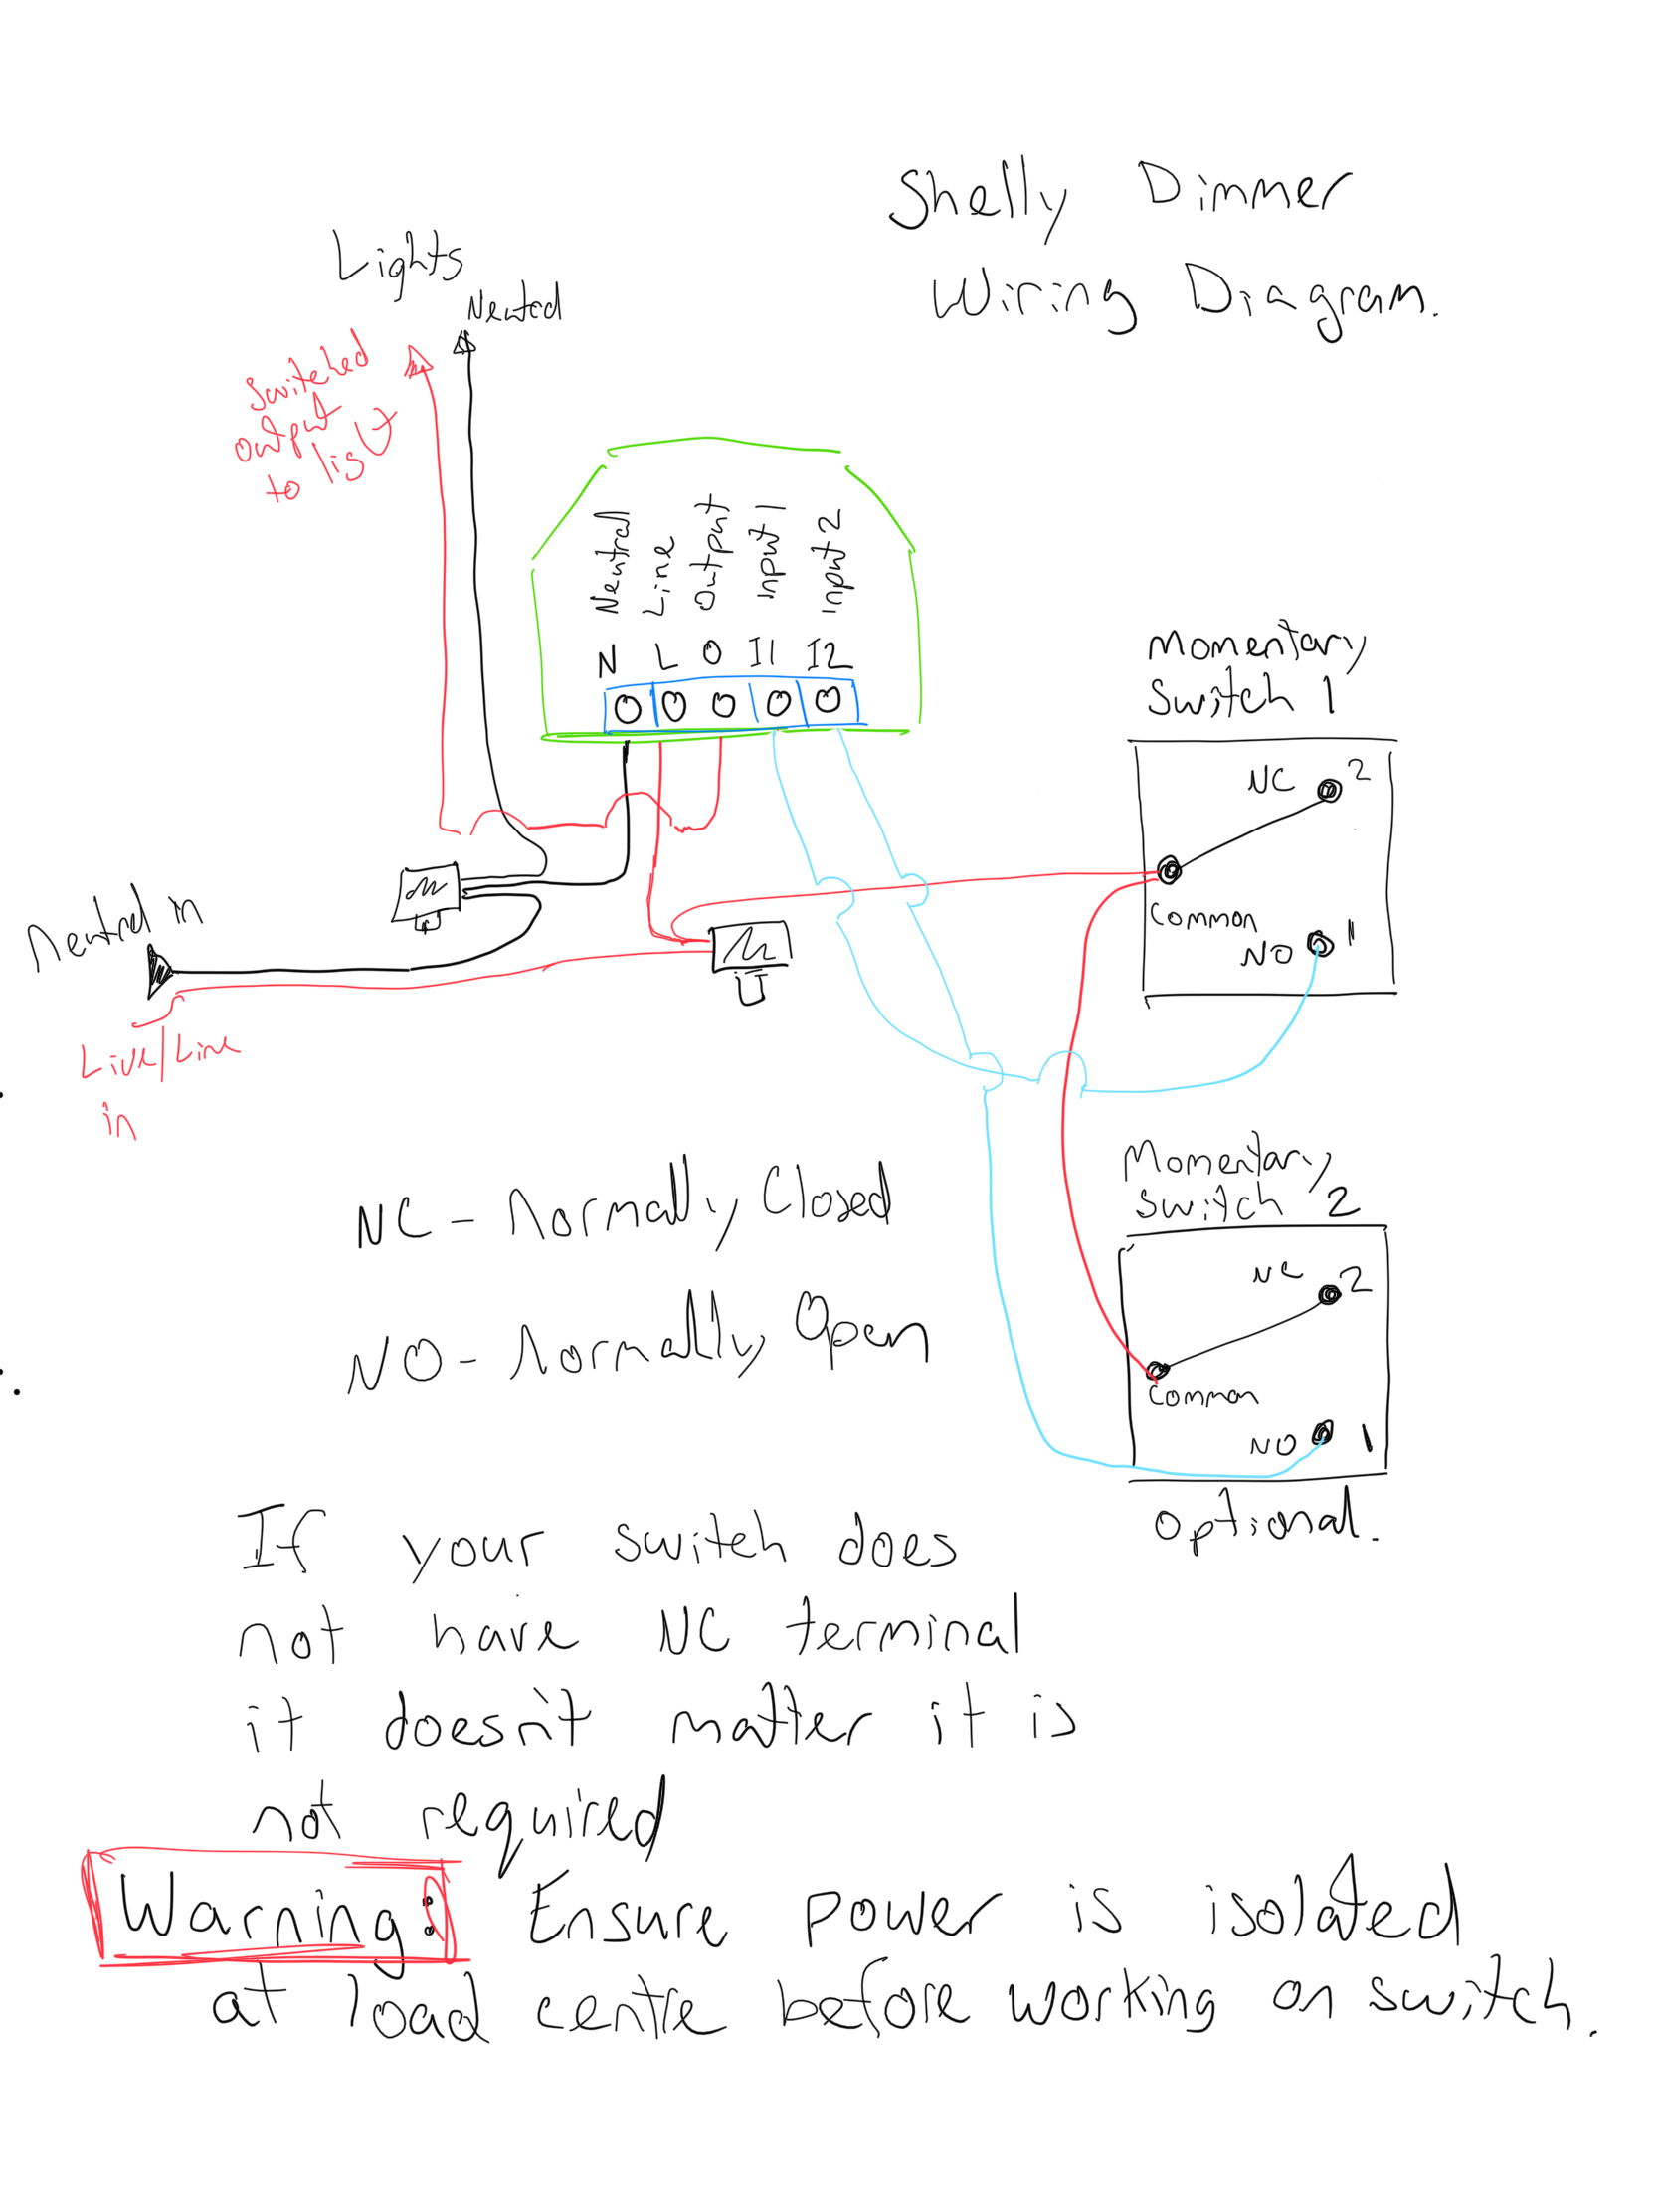 Shelly Dimmer
Wiring Diagram.
Lights
Neutral
Switched
output
to
Neutral
Line
Output
Input 1
Input 2
N L O I1 I2
Momentary
Switch 1
NC 2
Common
NO 1
Neutral in
Live/Line
in
NC - Normally Closed
NO - Normally Open
Momentary
Switch 2
NC 2
Common
NO 1
Optional.
If your switch does
not have NC terminal
it doesn't matter it is
not required
Warning: Ensure power is isolated
at load centre before working on switch.